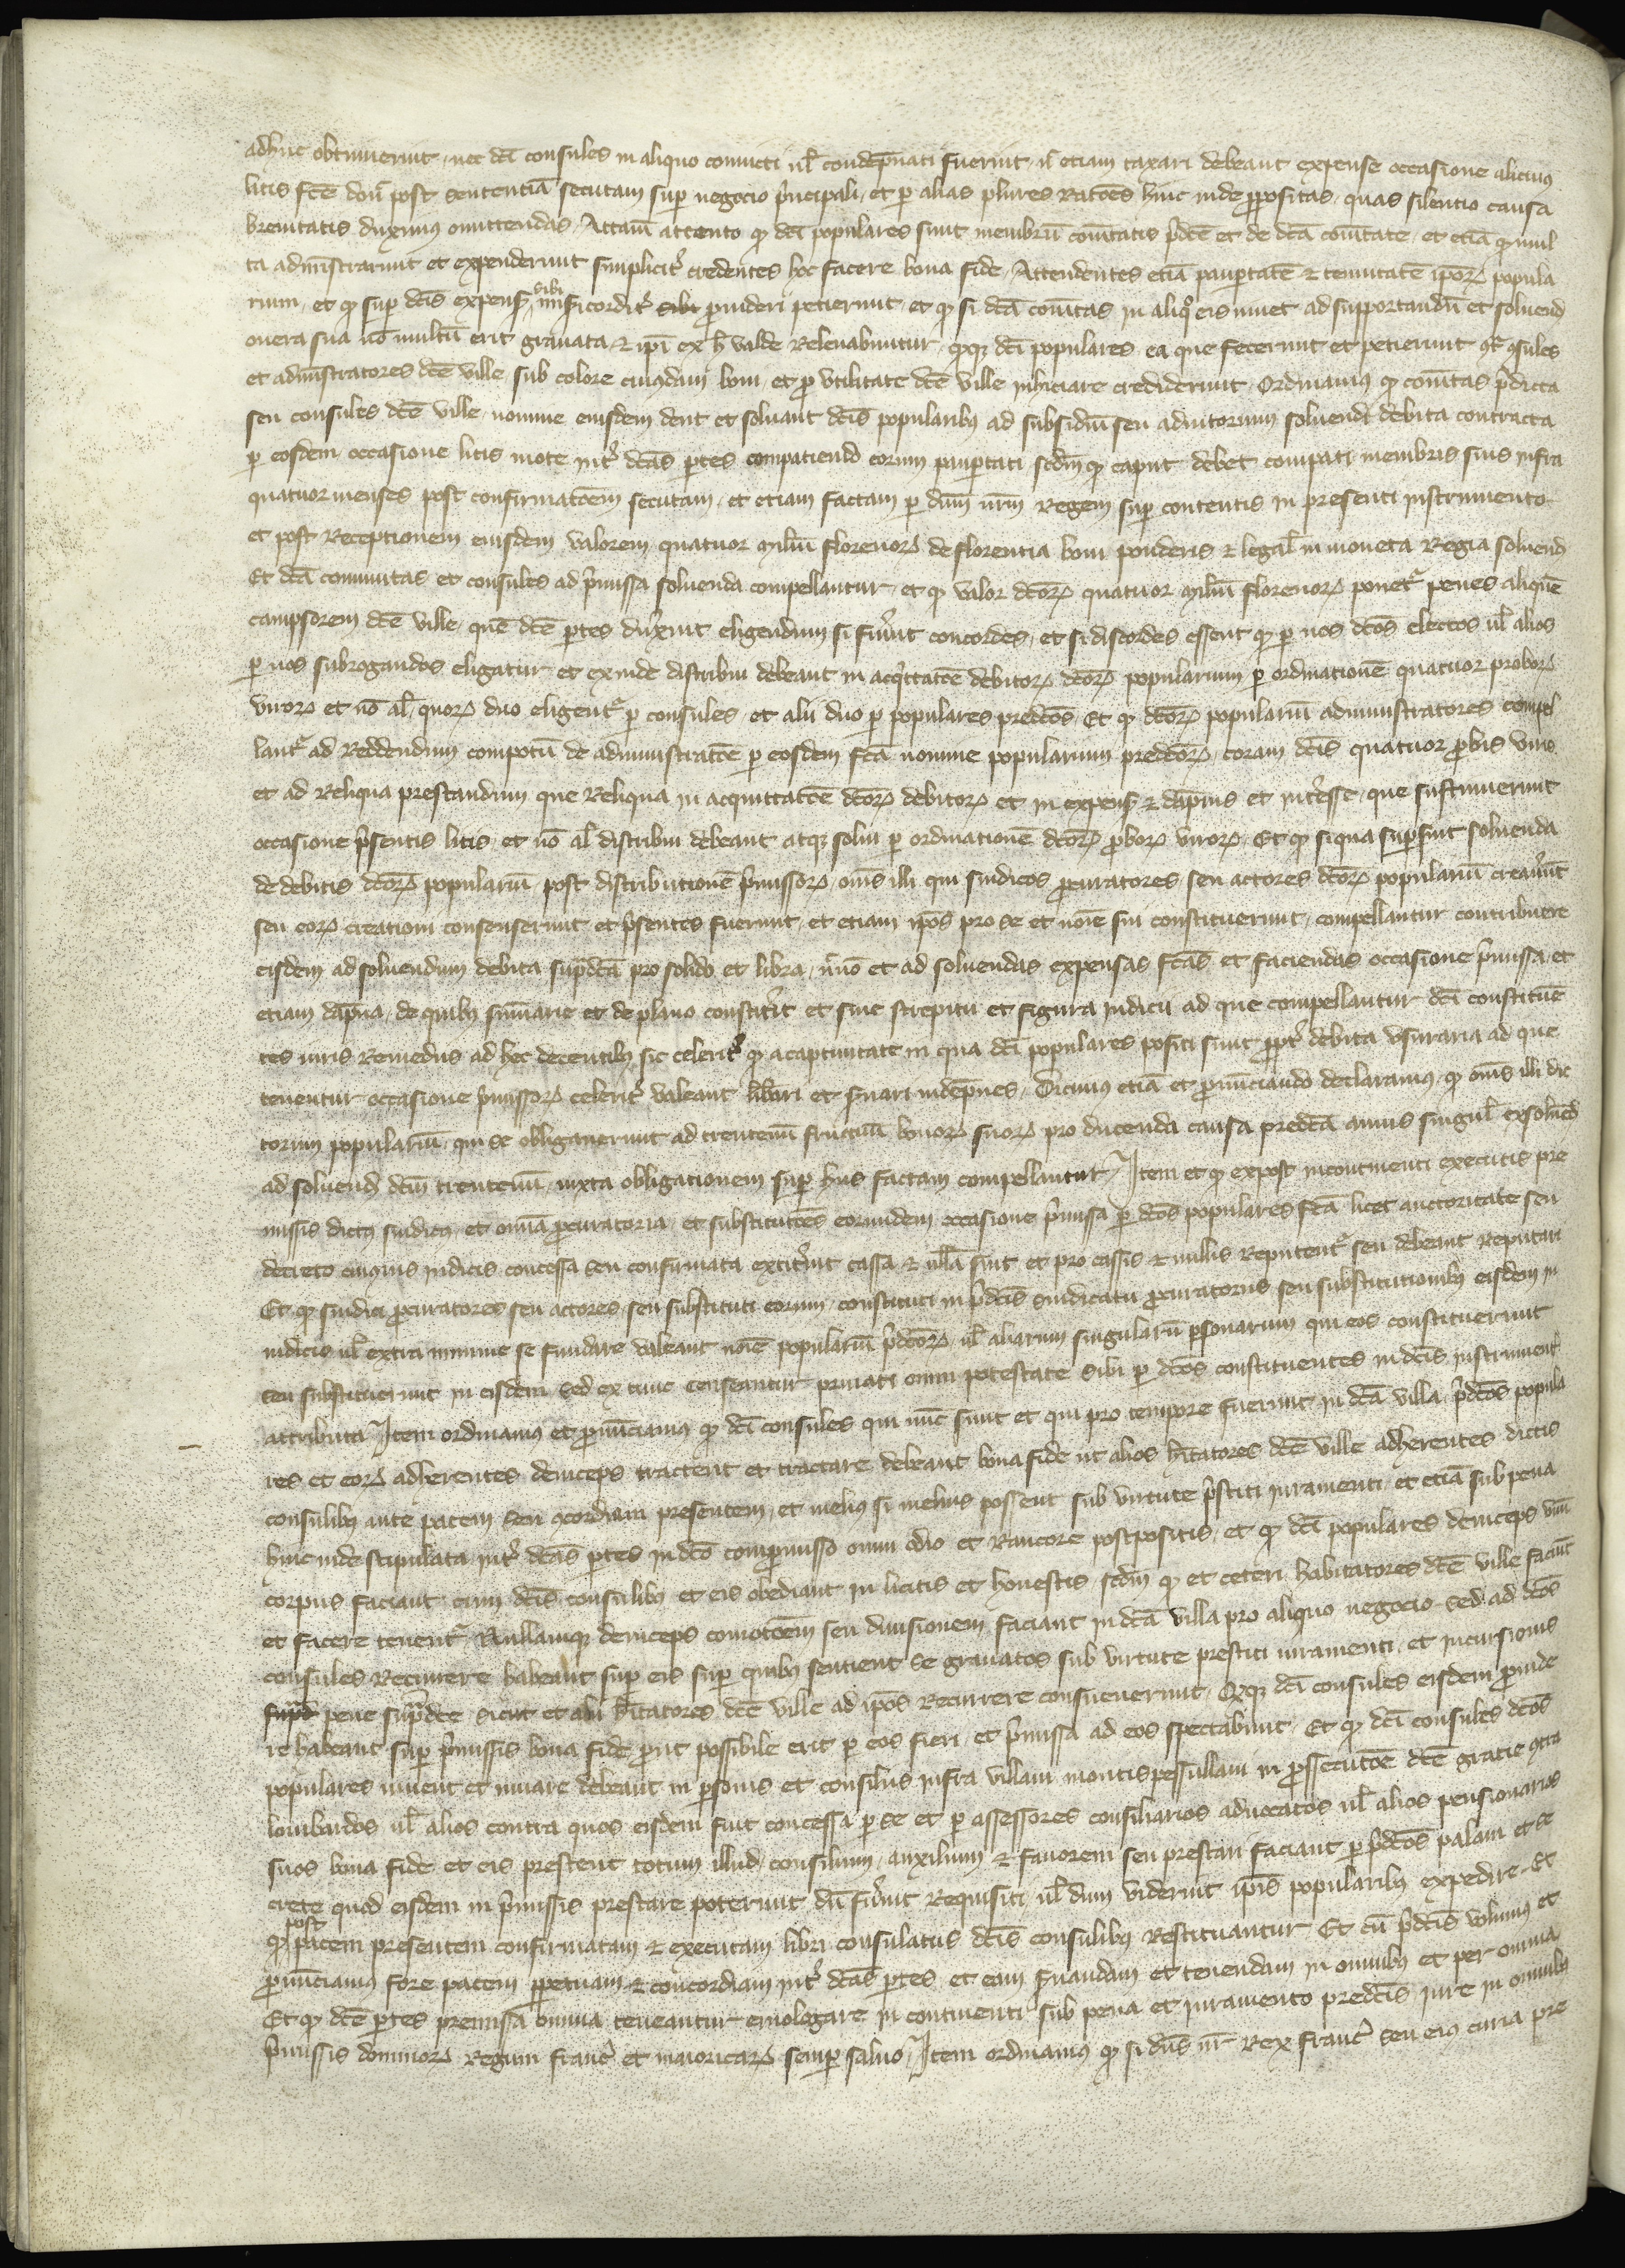 adhuc obtinuerint, nec dc̄i consules in aliquo convicti vl̄ condēpnati fuerint, n̄ etiam taxari debeant expense occasione alicuius
litis fc̄e don̄ post sententiā secutam sup̱ negocio p̄ncipali, et p̱ alias plures Rac̄ões hinc inde p̱positas, quas silentio causa
brevitatis duximus omittendas, Attam̄ attento qꝫ dc̄i populares sunt membrū coīt̄atis p̄dc̄e et de dc̄a coīt̄ate, et etiā qꝫ mul
ta adm̄istrarunt et expenderunt simplicit̾ credentes hoc facere bona fide, Attendentes etiā paup̱tatē ⁊ tenuitatē ip̄oꝝ popula
rium, et qꝫ sup̱ dc̄is expens̄ sibi mīsicordit̾ sibi p̱videri petierunt, et qꝫ si dc̄a coīt̄as in aliq̊ eis iuvet ad supportandū et solvend̄
onera sua nō multū erit gravata, ⁊ ip̄i ex h̄ valde Relevabuntur, qꝫqꝫ dc̄i populares ea que fecerunt et petierunt ꝯt̄ ꝯsules
et adm̄istratores dc̄e ville, sub colore cuiusdam boni, et p̱ utilitate dc̄e ville inhiciare crediderunt, Ordinamus qꝫ coīt̄as p̄dicta
seu consules dc̄e ville, nomine eiusdem dent et solvant dc̄is popularibꝫ ad subsidiū seu adiutorium solvendi debita contracta
p̱ eosdem, occasione litis mote int̾ dc̄as p̱tes compatiendo eorum paup̱tati, scd̄m qꝫ caput debet compati membris suis infra
quatuor menses post confirmac̄oem secutam, et etiam factam p̱ dn̄m nr̄m Regem sup̱ contentis in presenti instrumento
et post Receptionem eiusdem valorem quatuor miliū florenoꝝ de florentia boni ponderis ⁊ legal̄ in moneta Regia solvend̄
Et dc̄a comunitas et consules ad p̄missa solvenda compellantur, et qꝫ valor dc̄oꝝ quatuor miliū florenoꝝ ponet̾ penes aliquē
campsorem dc̄e ville, quē dc̄e p̱tes dux̄int eligendum si fu̾int concordes, et si discordes essent qꝫ p̱ nos dc̄os electos vl̄ alios
p̱ nos subrogandos eligatur et exinde distribui debeant in acq̊ittac̄oe debitoꝝ dc̄oꝝ popularium p̱ ordinationē quatuor proboꝝ
viroꝝ et nō al̄, quoꝝ duo eligent̾ p̱ consules, et alii duo p̱ populares predc̄os, Et qꝫ dc̄oꝝ populariū administratores compel
lant̾ ad Reddendum compotū de administrac̄oe p̱ eosdem fc̄a nomine popularium predc̄oꝝ, coram dc̄is quatuor p̱bis viris
et ad Reliqua prestandum que Reliqua in acquittac̄oe dc̄oꝝ debitoꝝ et in expens̄ ⁊ dāpnis et int̾esse, que sustinuerunt
occasione p̄sentis litis, et nō al̄ distribui debeant atqꝫ solvi p̱ ordinationē dc̄oꝝ p̱boꝝ viroꝝ, Et qꝫ siqua sup̱sint solvenda
de debitis dc̄oꝝ populariū, post distributionē p̄missoꝝ, om̄s illi qui sindicos p̱curatores seu actores dc̄oꝝ populariū creav̾unt
seu eoꝝ creationi consenserunt et p̄sentes fuerunt, et etiam ip̄os pro se et nōie sui constituerunt, compellantur contribuere
eisdem ad solvendum debita sup̱dc̄a pro solido et libra, n̄nō et ad solvendas expensas fc̄as et faciendas occasione p̄missa, et
etiam dāpna, de quibꝫ sum̄arie et de plano constit̾it et sine strepitu et figura iudicii ad que compellantur dc̄i constituē
tes iuris Remediis ad hec decentibꝫ sic celerit̾ qꝫ a captivitate in qua dc̄i populares positi sunt p̱pt̾ debita usuraria ad que
tenentur occasione p̄missoꝝ celerit̾ valeant lib̾ari et s̾vari indēpnes, Dicimus etiā et p̱nūciando declaramus, qꝫ om̄s illi dic
torum populariū, qui se obligaverunt ad trentenū fructuū bonoꝝ suoꝝ pro ducenda causa predc̄a annis singul̄ exsolvēd̄
ad solvend̄ dc̄m trentenū, iuxta obligationem sup̱ hiis factam compellantur, Item et qꝫ expost incontinenti executis pre
missis dictus sindicꝰ, et om̄ia p̱curatoria, et substituc̄oes eorundem occasione p̄missa p̱ dc̄os populares fc̄a licet auctoritate seu
decreto cuiusvis iudicis concessa seu confirmata extit̾int cassa ⁊ ūlla sint et pro cassis ⁊ nullis Reputent̾ seu debeant Reputari
Et qꝫ sindici p̱curatores seu actores seu substituti eorum, constituti in p̄dc̄is sindicatu p̱curatoriis seu substitutionibꝫ eisdem in
iudiciis vl̄ extra minime se fundare valeant nōie populariū p̄dc̄oꝝ, vl̄ aliarum singularū p̱sonarum qui eos constituerunt
seu substituerunt in eisdem sed ex tunc censeantur privati omni potestate sibi p̱ dc̄os constituentes in dc̄is instrument̄
attributa, Item ordinamus et p̱nūciamus qꝫ dc̄i consules qui nūc sunt et qui pro tempore fuerint in dc̄a villa p̄dc̄os popula
res et eoꝝ adherentes deinceps tractent et tractare debeant bona fide ut alios hīt̄atores dc̄e ville adherentes dictis
consulibꝫ ante pacem seu ꝯcordiam presentem, et melius si melius possent sub virtute p̄stiti iuramenti, et etiā sub pena
hinc inde stipulata int̾ dc̄as p̱tes in dc̄o comp̱misso omni odio et Rancore postpositis, et qꝫ dc̄i populares deinceps unū
corpus faciant cum dc̄is consulibꝫ et eis obediant in licitis et honestis, scd̄m qꝫ et ceteri habitatores dc̄e ville faciūt
et facere tenent̾, Nullamqꝫ deinceps comoc̄oem seu divisionem faciant in dc̄a villa pro aliquo negocio, sed ad dc̄os
consules Recurrere habeant sup̱ eis sup̱ quibꝫ sentient se gravatos sub virtute prestiti iuramenti, et incursionis
sup̱d̄ pene sup̱dc̄e, sicut et alii hīt̄atores dc̄e ville ad ip̄os Recurrere consueverunt, Qꝫqꝫ dc̄i consules eisdem p̱vide
re habeant sup̱ p̄missis bona fide, p̱ut possibile erit p̱ eos fieri, et p̄missa ad eos spectabunt, Et qꝫ dc̄i consules dc̄os
populares iuvent et iuvare debeant in p̱sonis et consiliis infra villam montispessullani in p̱ssecuc̄oe dc̄e gratie ꝯtra
lombardos vl̄ alios contra quos eisdem fuit concessa p̱ se et p̱ assessores consiliarios advocatos vl̄ alios pensionarios
suos bona fide et eis prestent totum illud consilium, auxilium ⁊ favorem seu prestari faciant p̱ p̄dc̄os palam et se
crete quod eisdem in p̄missis prestare poterunt dū fu̾int Requisiti, vl̄ dum viderint ip̄is popularibꝫ expedire, Et
qꝫ post pacem presentem confirmatam ⁊ executam libri consulatus dc̄is consulibꝫ Restituantur Et cū p̄dc̄is volumus et
p̱nūciamus fore pacem p̱petuam ⁊ concordiam int̾ dc̄as p̱tes, et eam s̾vandam et tenendam in omnibꝫ et per omnia
Et qꝫ dc̄e p̱tes premissa omnia teneantur emologare in continenti sub pena et iuramento predc̄is, iure in omnibꝫ
p̄missis dominoꝝ Regum franc̾ et maioricaꝝ semp̱ salvo, Item ordinamus qꝫ si dn̄s nr̄ Rex franc̾ seu eius curia pre